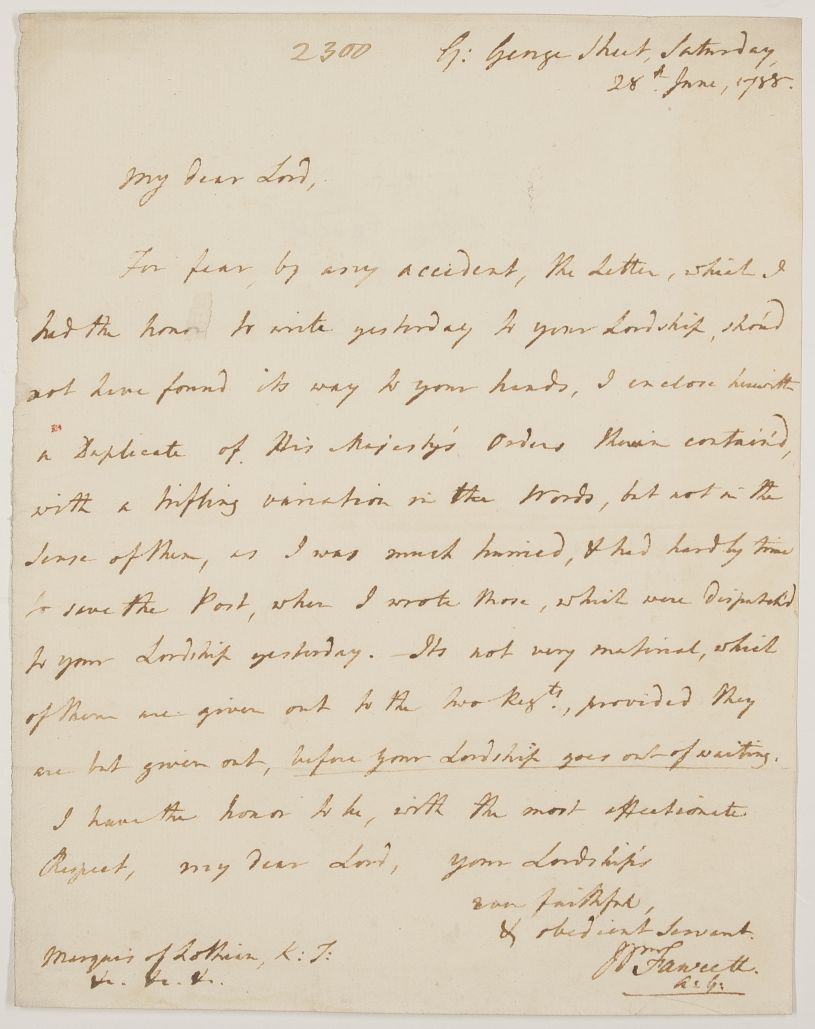 2300
G: George Street, Saturday,
28th June, 1788.
My dear Lord,
For fear, by any accident, the Letter, which I
had the honor to write yesterday to your Lordship, shou'd
not have found its way to your hands, I enclose herewith
a Duplicate of His Majesty's Orders therein contain'd,
with a trifling variation in the Words, but not in the
sense of them, as I was much hurried, & had hardly time
to save the Post, when I wrote those, which were dispatch'd
to your Lordship yesterday. - Its not very material, which
of them are given out to the two Regts., provided they
are but given out, before your Lordship goes out of waiting.
I have the honor to be, with the most affectionate
Respect, my dear Lord, your Lordship's
ever faithful,
& obedient Servant.
Wm Fawcett.
A: G:
Marquis of Lothian, K: T:
&c. &c. &c.